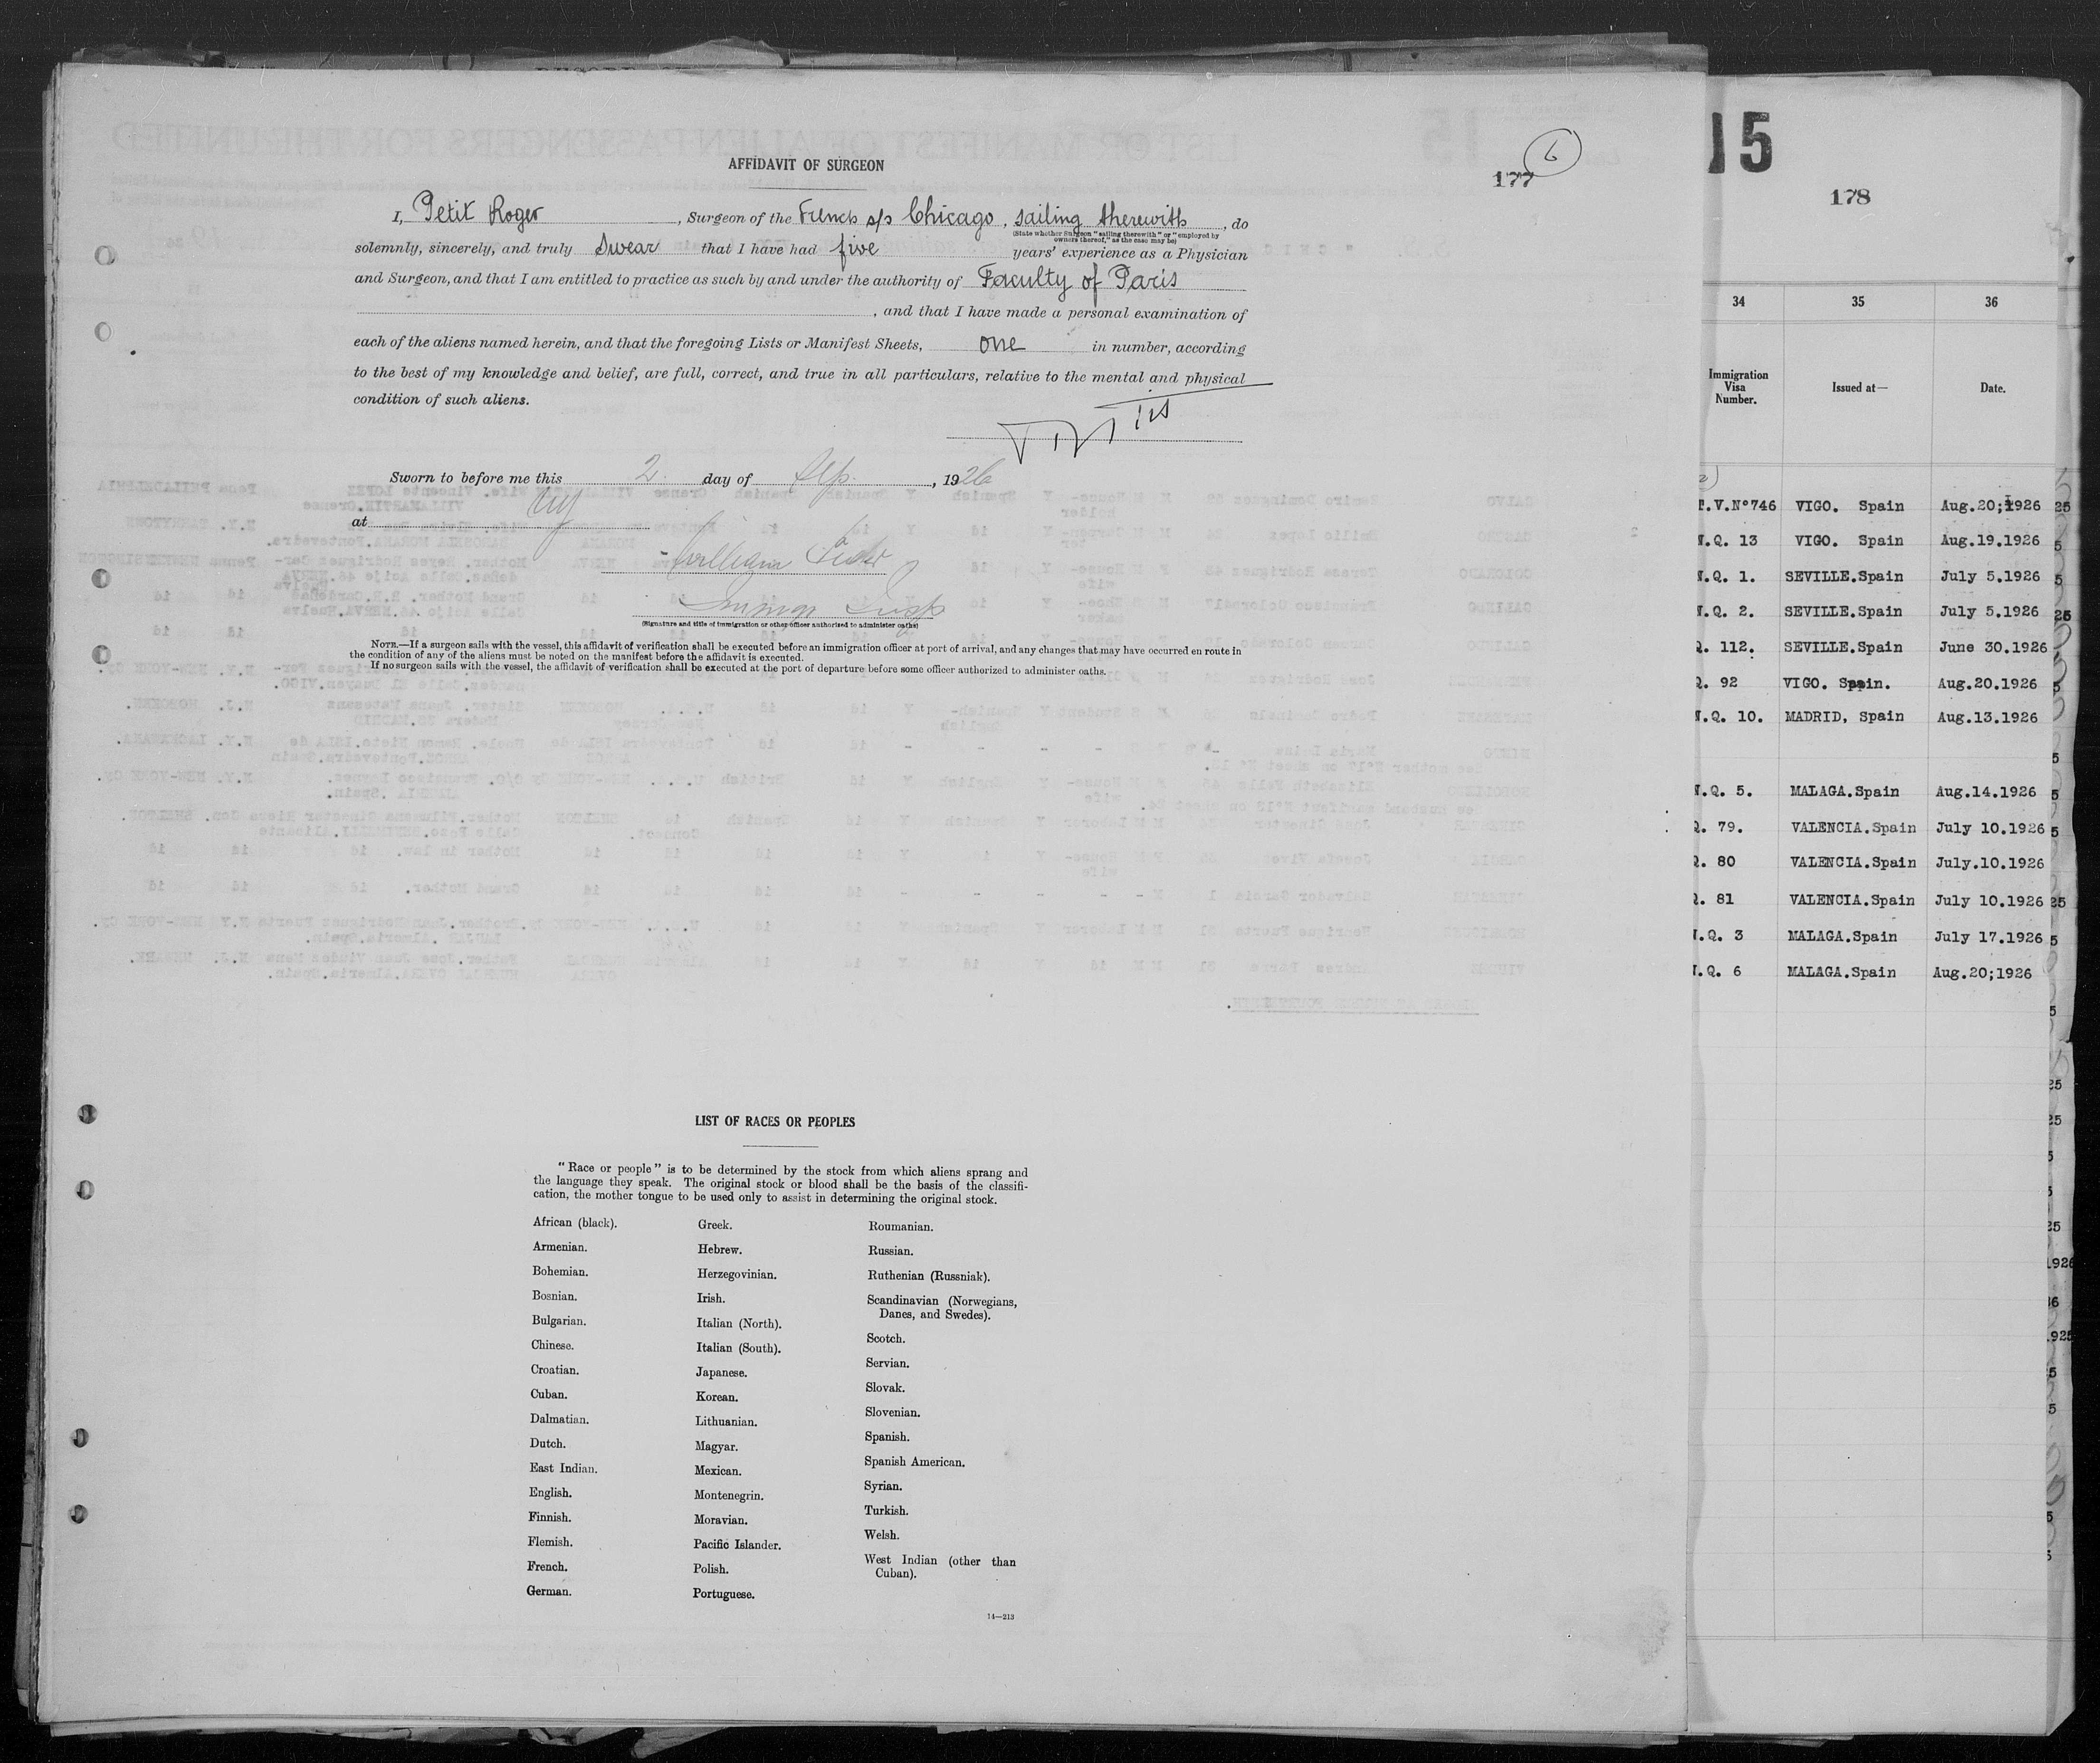 AFFIDAVIT OF SURGEON
6
177
I, Petit Roger, Surgeon of the French s/s Chicago, sailing therewith, do
(State whether Surgeon "sailing therewith" or "employed by
owners thereof," as the case may be)
solemnly, sincerely, and truly Swear that I have had five years' experience as a Physician
and Surgeon, and that I am entitled to practice as such by and under the authority of Faculty of Paris
, and that I have made a personal examination of
each of the aliens named herein, and that the foregoing Lists or Manifest Sheets, one in number, according
to the best of my knowledge and belief, are full, correct, and true in all particulars, relative to the mental and physical
condition of such aliens.
Sworn to before me this 2 day of Sep., 1926
at NY
William
(Signature and title of immigration or other officer authorized to administer oaths)
NOTE.—If a surgeon sails with the vessel, this affidavit of verification shall be executed before an immigration officer at port of arrival, and any changes that may have occurred en route in
the condition of any of the aliens must be noted on the manifest before the affidavit is executed.
If no surgeon sails with the vessel, the affidavit of verification shall be executed at the port of departure before some officer authorized to administer oaths.
LIST OF RACES OR PEOPLES
"Race or people" is to be determined by the stock from which aliens sprang and
the language they speak. The original stock or blood shall be the basis of the classifi-
cation, the mother tongue to be used only to assist in determining the original stock.
African (black).
Armenian.
Bohemian.
Bosnian.
Bulgarian.
Chinese.
Croatian.
Cuban.
Dalmatian.
Dutch.
East Indian.
English.
Finnish.
Flemish.
French.
German.
Greek.
Hebrew.
Herzegovinian.
Irish.
Italian (North).
Italian (South).
Japanese.
Korean.
Lithuanian.
Magyar.
Mexican.
Montenegrin.
Moravian.
Pacific Islander.
Polish.
Portuguese.
Roumanian.
Russian.
Ruthenian (Russniak).
Scandinavian (Norwegians,
Danes, and Swedes).
Scotch.
Servian.
Slovak.
Slovenian.
Spanish.
Spanish American.
Syrian.
Turkish.
Welsh.
West Indian (other than
Cuban).
14—213
15
178
34 35 36
Immigration
Visa
Number.
Issued at—
Date.
T.V.N°746 VIGO. Spain Aug.20;1926
N.Q. 13 VIGO. Spain Aug.19.1926
N.Q. 1. SEVILLE.Spain July 5.1926
N.Q. 2. SEVILLE.Spain July 5.1926
Q. 112. SEVILLE.Spain June 30.1926
Q. 92 VIGO. Spain. Aug.20.1926
N.Q. 10. MADRID, Spain Aug.13.1926
N.Q. 5. MALAGA.Spain Aug.14.1926
Q. 79. VALENCIA.Spain July 10.1926
Q. 80 VALENCIA.Spain July.10.1926
Q. 81 VALENCIA.Spain July 10.1926
N.Q. 3 MALAGA.Spain July 17.1926
N.Q. 6 MALAGA.Spain Aug.20;1926